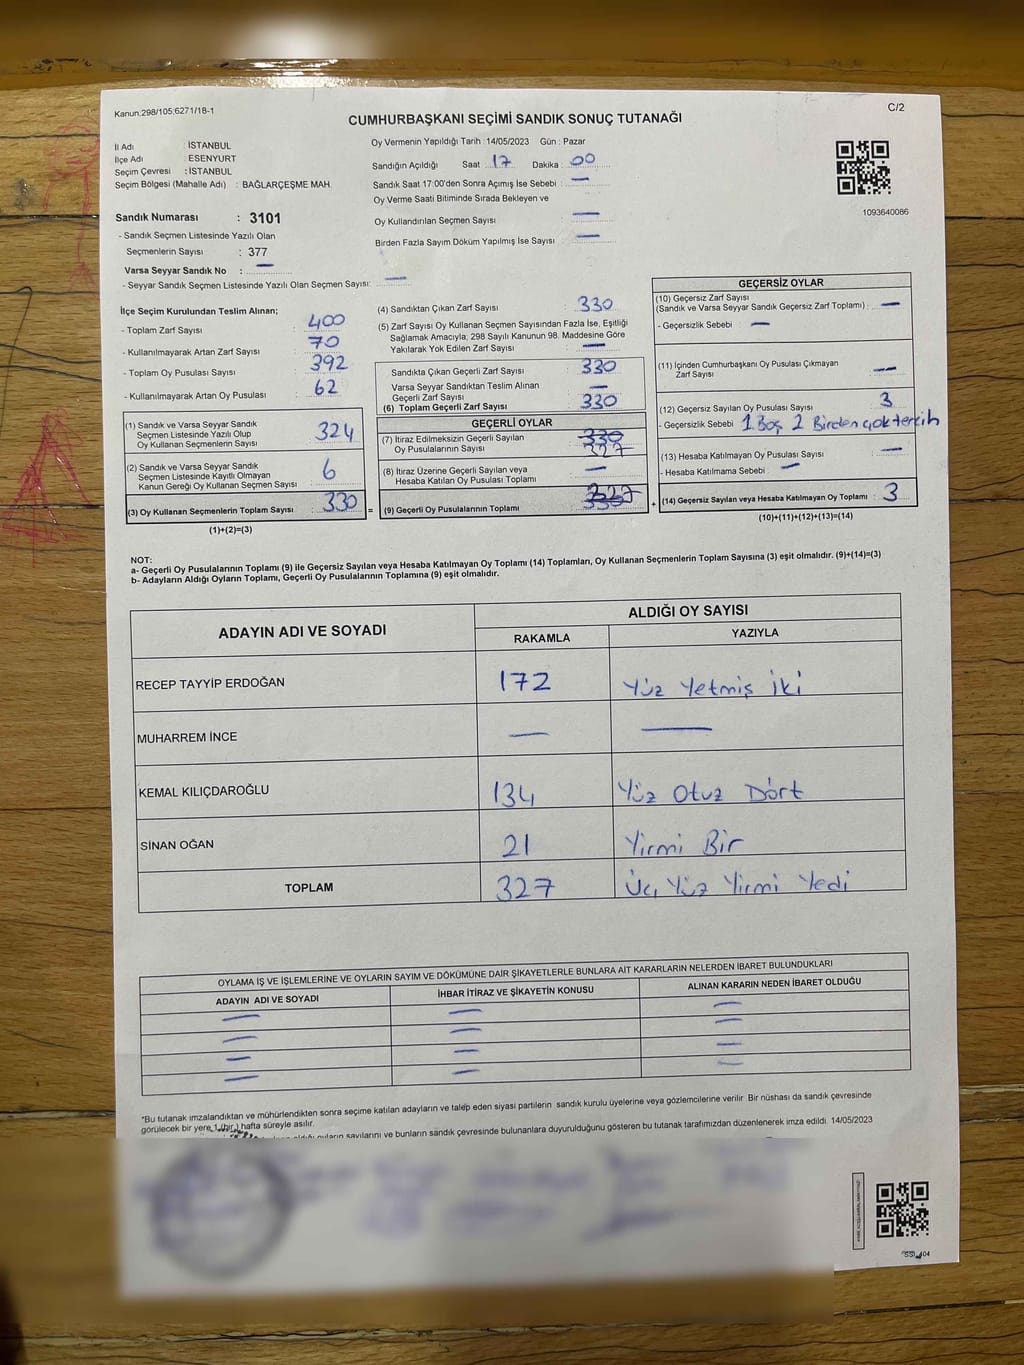 Kanun.298/105,6271/18-1
C/2
CUMHURBAŞKANI SEÇİMİ SANDIK SONUÇ TUTANAĞI
İl Adı : İSTANBUL
İlçe Adı : ESENYURT
Seçim Çevresi : İSTANBUL
Seçim Bölgesi (Mahalle Adı) : BAĞLARÇEŞME MAH.
Oy Vermenin Yapıldığı Tarih :14/05/2023 Gün : Pazar
Sandığın Açıldığı Saat : 17 Dakika : 00
Sandık Saat 17:00'den Sonra Açımış İse Sebebi : —
Oy Verme Saati Bitiminde Sırada Bekleyen ve
Oy Kullandırılan Seçmen Sayısı : —
Birden Fazla Sayım Döküm Yapılmış İse Sayısı : —
1093640086
Sandık Numarası : 3101
- Sandık Seçmen Listesinde Yazılı Olan
Seçmenlerin Sayısı : 377
Varsa Seyyar Sandık No : —
- Seyyar Sandık Seçmen Listesinde Yazılı Olan Seçmen Sayısı: —
İlçe Seçim Kurulundan Teslim Alınan;
- Toplam Zarf Sayısı : 400
- Kullanılmayarak Artan Zarf Sayısı : 70
- Toplam Oy Pusulası Sayısı : 392
- Kullanılmayarak Artan Oy Pusulası : 62
(1) Sandık ve Varsa Seyyar Sandık
Seçmen Listesinde Yazılı Olup
Oy Kullanan Seçmenlerin Sayısı : 324
(2) Sandık ve Varsa Seyyar Sandık
Seçmen Listesinde Kayıtlı Olmayan
Kanun Gereği Oy Kullanan Seçmen Sayısı : 6
(3) Oy Kullanan Seçmenlerin Toplam Sayısı : 330 =
(1)+(2)=(3)
(4) Sandıktan Çıkan Zarf Sayısı : 330
(5) Zarf Sayısı Oy Kullanan Seçmen Sayısından Fazla İse, Eşitliği
Sağlamak Amacıyla; 298 Sayılı Kanunun 98. Maddesine Göre
Yakılarak Yok Edilen Zarf Sayısı : —
Sandıkta Çıkan Geçerli Zarf Sayısı : 330
Varsa Seyyar Sandıktan Teslim Alınan
Geçerli Zarf Sayısı : —
(6) Toplam Geçerli Zarf Sayısı : 330
GEÇERLİ OYLAR
(7) İtiraz Edilmeksizin Geçerli Sayılan 330
Oy Pusulasının Sayısı : 327
(8) İtiraz Üzerine Geçerli Sayılan veya
Hesaba Katılan Oy Pusulası Toplamı : —
(9) Geçerli Oy Pusulalarının Toplamı : 327 +
GEÇERSİZ OYLAR
(10) Geçersiz Zarf Sayısı
(Sandık ve Varsa Seyyar Sandık Geçersiz Zarf Toplamı) : —
- Geçersizlik Sebebi : —
(11) İçinden Cumhurbaşkanı Oy Pusulası Çıkmayan
Zarf Sayısı : —
(12) Geçersiz Sayılan Oy Pusulası Sayısı : 3
- Geçersizlik Sebebi : 1 Boş 2 Birden çok tercih
(13) Hesaba Katılmayan Oy Pusulası Sayısı : —
- Hesaba Katılmama Sebebi : —
(14) Geçersiz Sayılan veya Hesaba Katılmayan Oy Toplamı : 3
(10)+(11)+(12)+(13)=(14)
NOT:
a- Geçerli Oy Pusulalarının Toplamı (9) ile Geçersiz Sayılan veya Hesaba Katılmayan Oy Toplamı (14) Toplamları, Oy Kullanan Seçmenlerin Toplam Sayısına (3) eşit olmalıdır. (9)+(14)=(3)
b- Adayların Aldığı Oyların Toplamı, Geçerli Oy Pusulalarının Toplamına (9) eşit olmalıdır.
ADAYIN ADI VE SOYADI
ALDIĞI OY SAYISI
RAKAMLA YAZIYLA
RECEP TAYYİP ERDOĞAN 172 Yüz Yetmiş İki
MUHARREM İNCE — —
KEMAL KILIÇDAROĞLU 134 Yüz Otuz Dört
SİNAN OĞAN 21 Yirmi Bir
TOPLAM 327 Üç Yüz Yirmi Yedi
OYLAMA İŞ VE İŞLEMLERİNE VE OYLARIN SAYIM VE DÖKÜMÜNE DAİR ŞİKAYETLERLE BUNLARA AİT KARARLARIN NELERDEN İBARET BULUNDUKLARI
ADAYIN ADI VE SOYADI İHBAR İTİRAZ VE ŞİKAYETİN KONUSU ALINAN KARARIN NEDEN İBARET OLDUĞU
— — —
— — —
— — —
— — —
*Bu tutanak imzalandıktan ve mühürlendikten sonra seçime katılan adayların ve talep eden siyasi partilerin sandık kurulu üyelerine veya gözlemcilerine verilir. Bir nüshası da sandık çevresinde
görülecek bir yere 1 (bir) hafta süreyle asılır.
oyların sayılarını ve bunların sandık çevresinde bulunanlara duyurulduğunu gösteren bu tutanak tarafımızdan düzenlenerek imza edildi. 14/05/2023